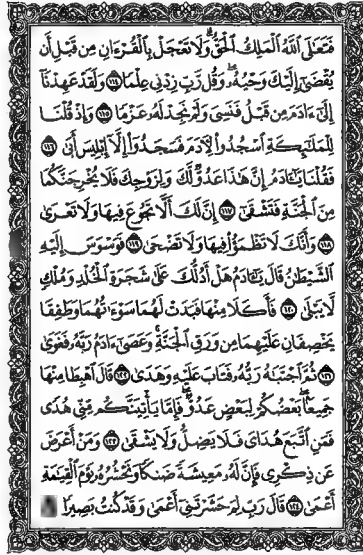 فَتَعَـٰلَى ٱللَّهُ ٱلْمَلِكُ ٱلْحَقُّ ۗ وَلَا تَعْجَلْ بِٱلْقُرْءَانِ مِن قَبْلِ أَن
يُقْضَىٰٓ إِلَيْكَ وَحْيُهُۥ ۖ وَقُل رَّبِّ زِدْنِى عِلْمًا ١١٤ وَلَقَدْ عَهِدْنَآ
إِلَىٰٓ ءَادَمَ مِن قَبْلُ فَنَسِىَ وَلَمْ نَجِدْ لَهُۥ عَزْمًا ١١٥ وَإِذْ قُلْنَا
لِلْمَلَـٰٓئِكَةِ ٱسْجُدُوا۟ لِـَٔادَمَ فَسَجَدُوٓا۟ إِلَّآ إِبْلِيسَ أَبَىٰ ١١٦
فَقُلْنَا يَـٰٓـَٔادَمُ إِنَّ هَـٰذَا عَدُوٌّ لَّكَ وَلِزَوْجِكَ فَلَا يُخْرِجَنَّكُمَا
مِنَ ٱلْجَنَّةِ فَتَشْقَىٰٓ ١١٧ إِنَّ لَكَ أَلَّا تَجُوعَ فِيهَا وَلَا تَعْرَىٰ
١١٨ وَأَنَّكَ لَا تَظْمَؤُا۟ فِيهَا وَلَا تَضْحَىٰ ١١٩ فَوَسْوَسَ إِلَيْهِ
ٱلشَّيْطَـٰنُ قَالَ يَـٰٓـَٔادَمُ هَلْ أَدُلُّكَ عَلَىٰ شَجَرَةِ ٱلْخُلْدِ وَمُلْكٍ
لَّا يَبْلَىٰ ١٢٠ فَأَكَلَا مِنْهَا فَبَدَتْ لَهُمَا سَوْءَٰتُهُمَا وَطَفِقَا
يَخْصِفَانِ عَلَيْهِمَا مِن وَرَقِ ٱلْجَنَّةِ ۚ وَعَصَىٰٓ ءَادَمُ رَبَّهُۥ فَغَوَىٰ
١٢١ ثُمَّ ٱجْتَبَـٰهُ رَبُّهُۥ فَتَابَ عَلَيْهِ وَهَدَىٰ ١٢٢ قَالَ ٱهْبِطَا مِنْهَا
جَمِيعًۢا ۖ بَعْضُكُمْ لِبَعْضٍ عَدُوٌّ ۖ فَإِمَّا يَأْتِيَنَّكُم مِّنِّى هُدًى
فَمَنِ ٱتَّبَعَ هُدَاىَ فَلَا يَضِلُّ وَلَا يَشْقَىٰ ١٢٣ وَمَنْ أَعْرَضَ
عَن ذِكْرِى فَإِنَّ لَهُۥ مَعِيشَةً ضَنكًا وَنَحْشُرُهُۥ يَوْمَ ٱلْقِيَـٰمَةِ
أَعْمَىٰ ١٢٤ قَالَ رَبِّ لِمَ حَشَرْتَنِىٓ أَعْمَىٰ وَقَدْ كُنتُ بَصِيرًا